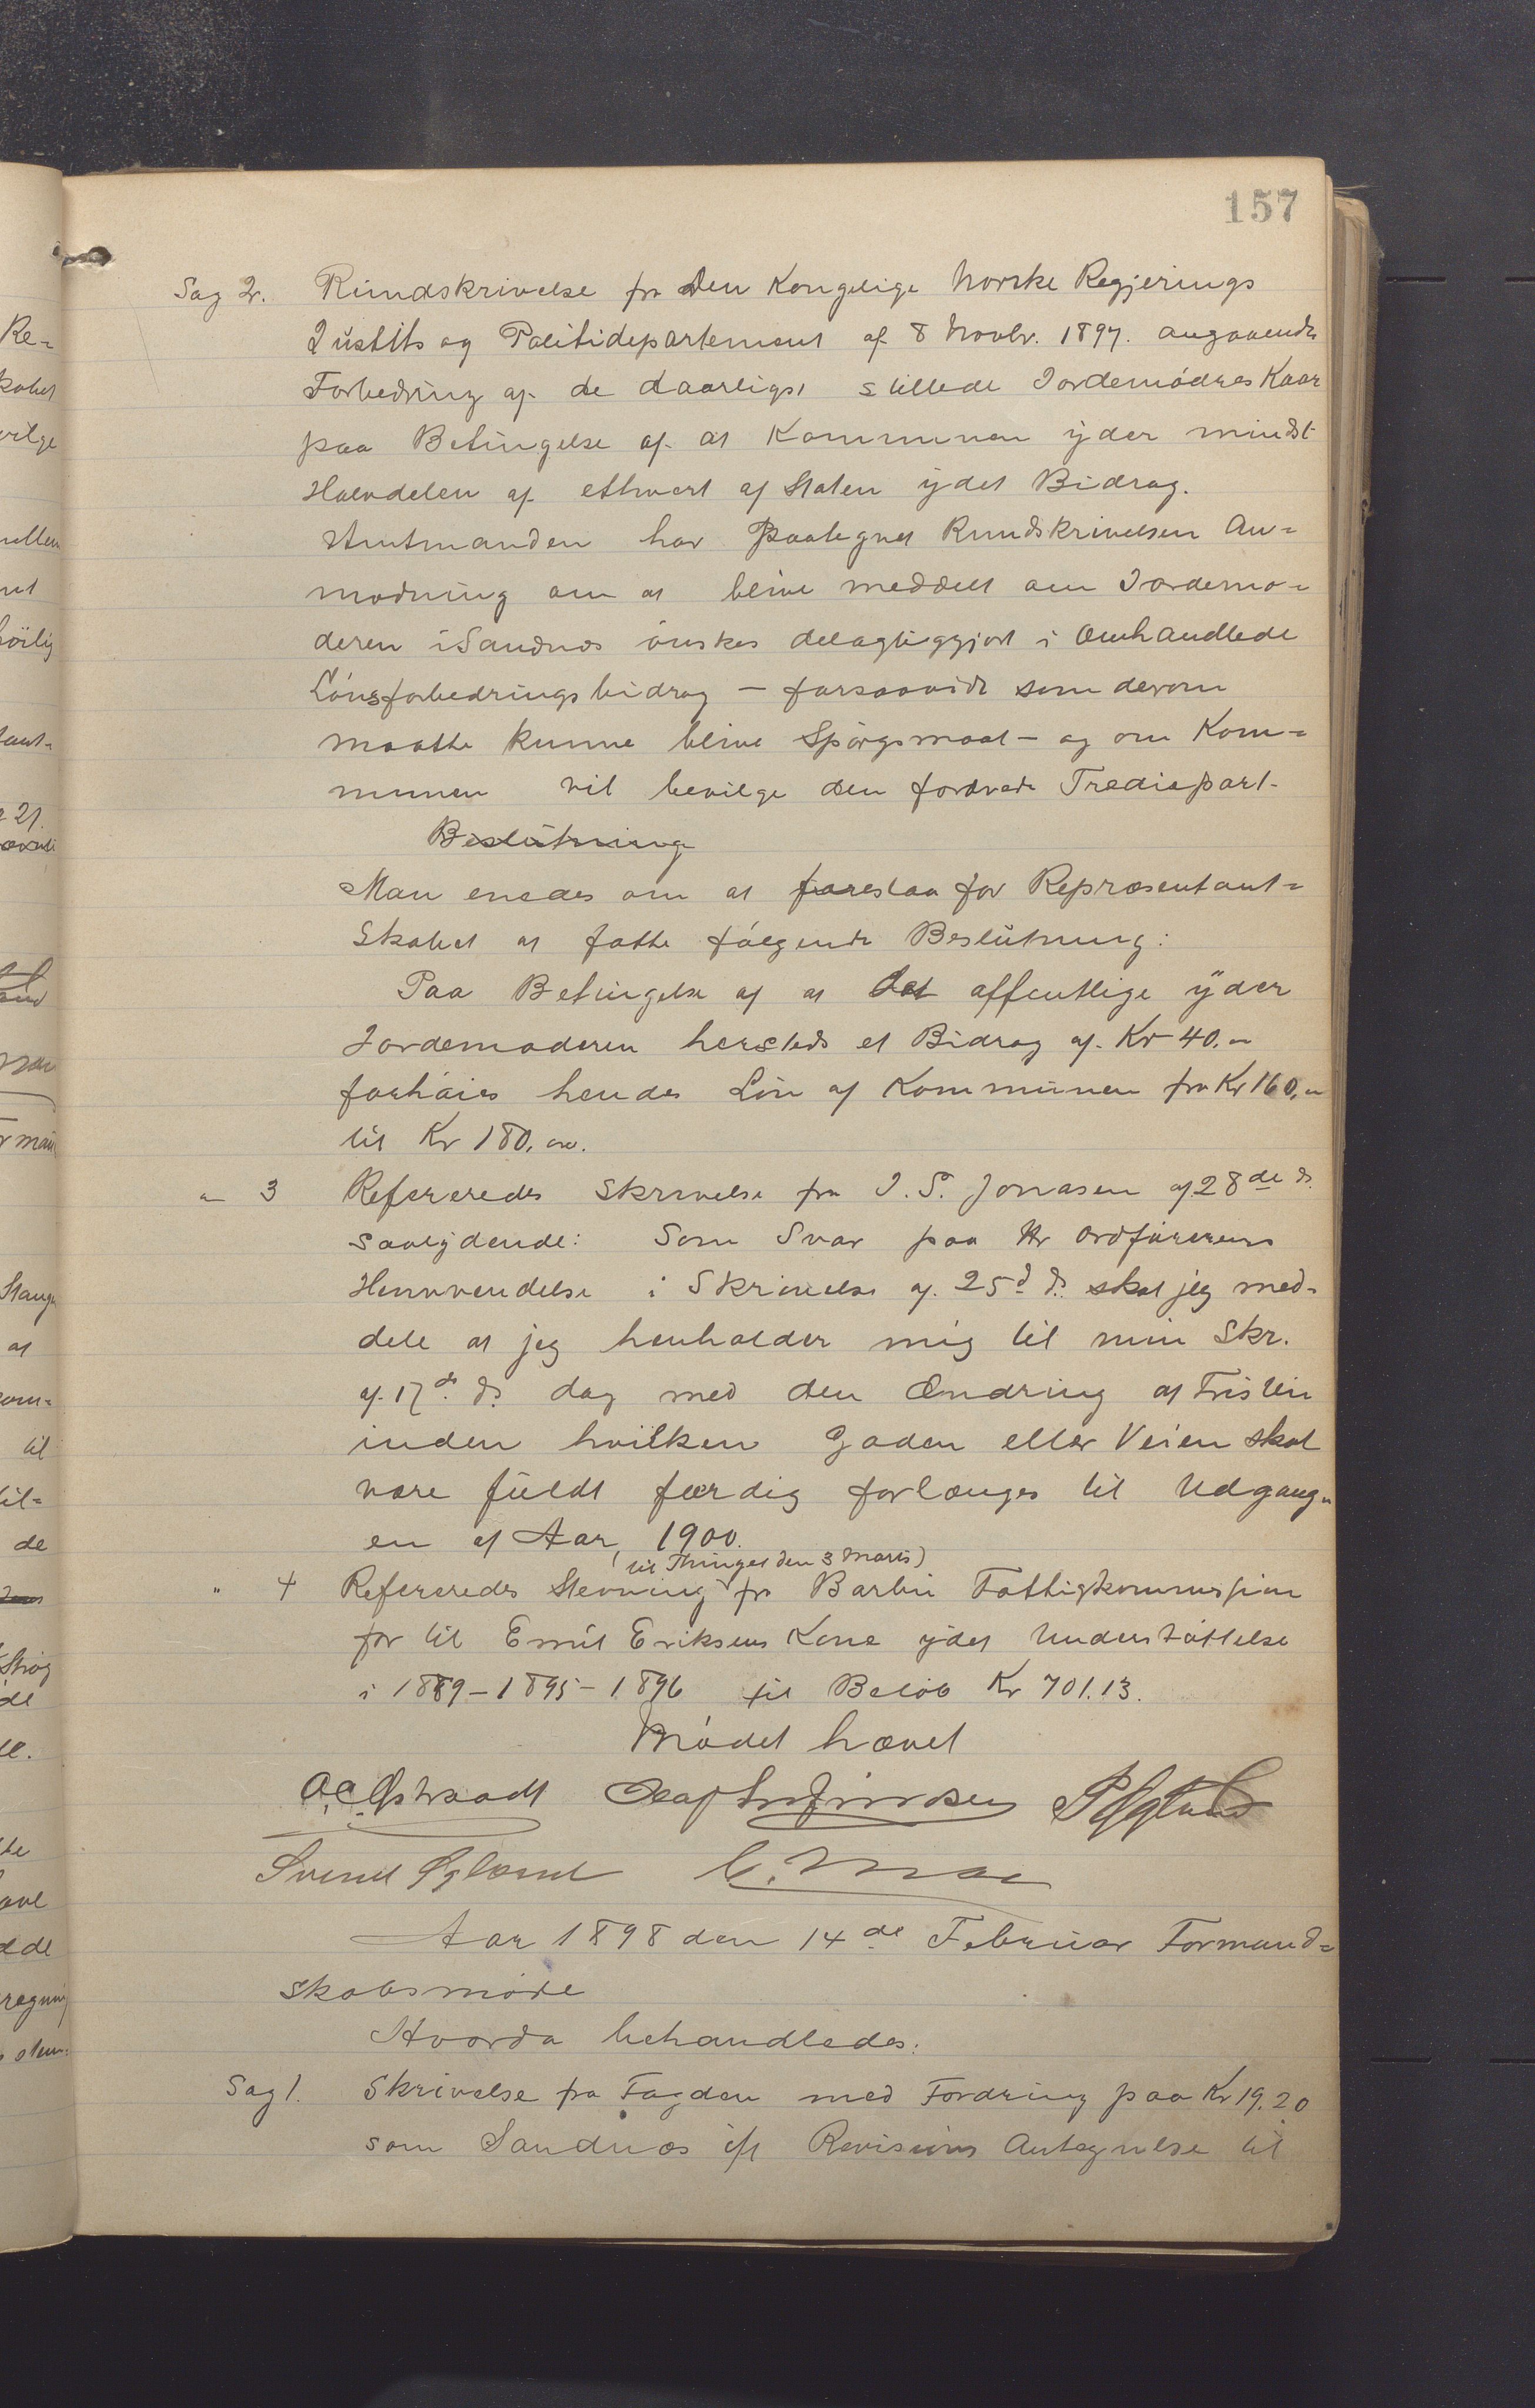 157
Sag 2. Rundskrivelse fra Den Kongelige Norske Regjerings
Justits og Politidepartement af 8 Novbr. 1897. angaaende
Forbedring af de daarligst stillede Jordemødres Kaar
paa Betingelse af at Kommunen yder mindst
Halvdelen af ethvert af Staten ydet Bidrag.
Amtmanden har Paategnet Rundskrivelsen An=
modning om at blive meddelt om Jordemo=
deren i Sandnæs ønskes delagtiggjort i Omhandlede
Lønsforbedringsbidrag – forsaavidt som derom
maatte kunne blive Spørgsmaal – og om Kom=
munen vil bevilge den fordrede Trediepart.
Beslutning
Man enedes om at foreslaa for Repræsentant=
Skabet at fatte følgende Beslutning:
Paa Betingelse af at det offentlige yder
Jordemoderen hersteds et Bidrag af Kr 40.
forhøies hendes Løn af Kommunen fra Kr 160,
til Kr 180.
" 3 Refereredes Skrivelse fra J. S. Jonasen af 28de ds.
saalydende: Som Svar paa Hr Ordførerens
Henvvendelse i Skrivelse af 25d ds. skal jeg med=
dele at jeg henholder mig til min Skr.
af 17d ds. dag med den Ændring at Fristen
inden hvilken Gaden eller Veien skal
være fuldt færdig forlænges til Udgang=
en af Aar, 1900.
(til Thinget den 3 Marts)
" 4 Refereredes Stevning fra Barbu Fattigkommission
for til Emil Eriksens Kone ydet Understøttelse
i 1889–1895–1896 til Beløb Kr 701.13.
Mødet hævet
Svend Øgland
Aar 1898 den 14de Februar Formand=
skabsmøde
Hvorda behandledes:
Sag 1. Skrivelse fra Fogden med Fordring paa Kr 19.20
som Sandnæs ift Revisions Antegnelse til